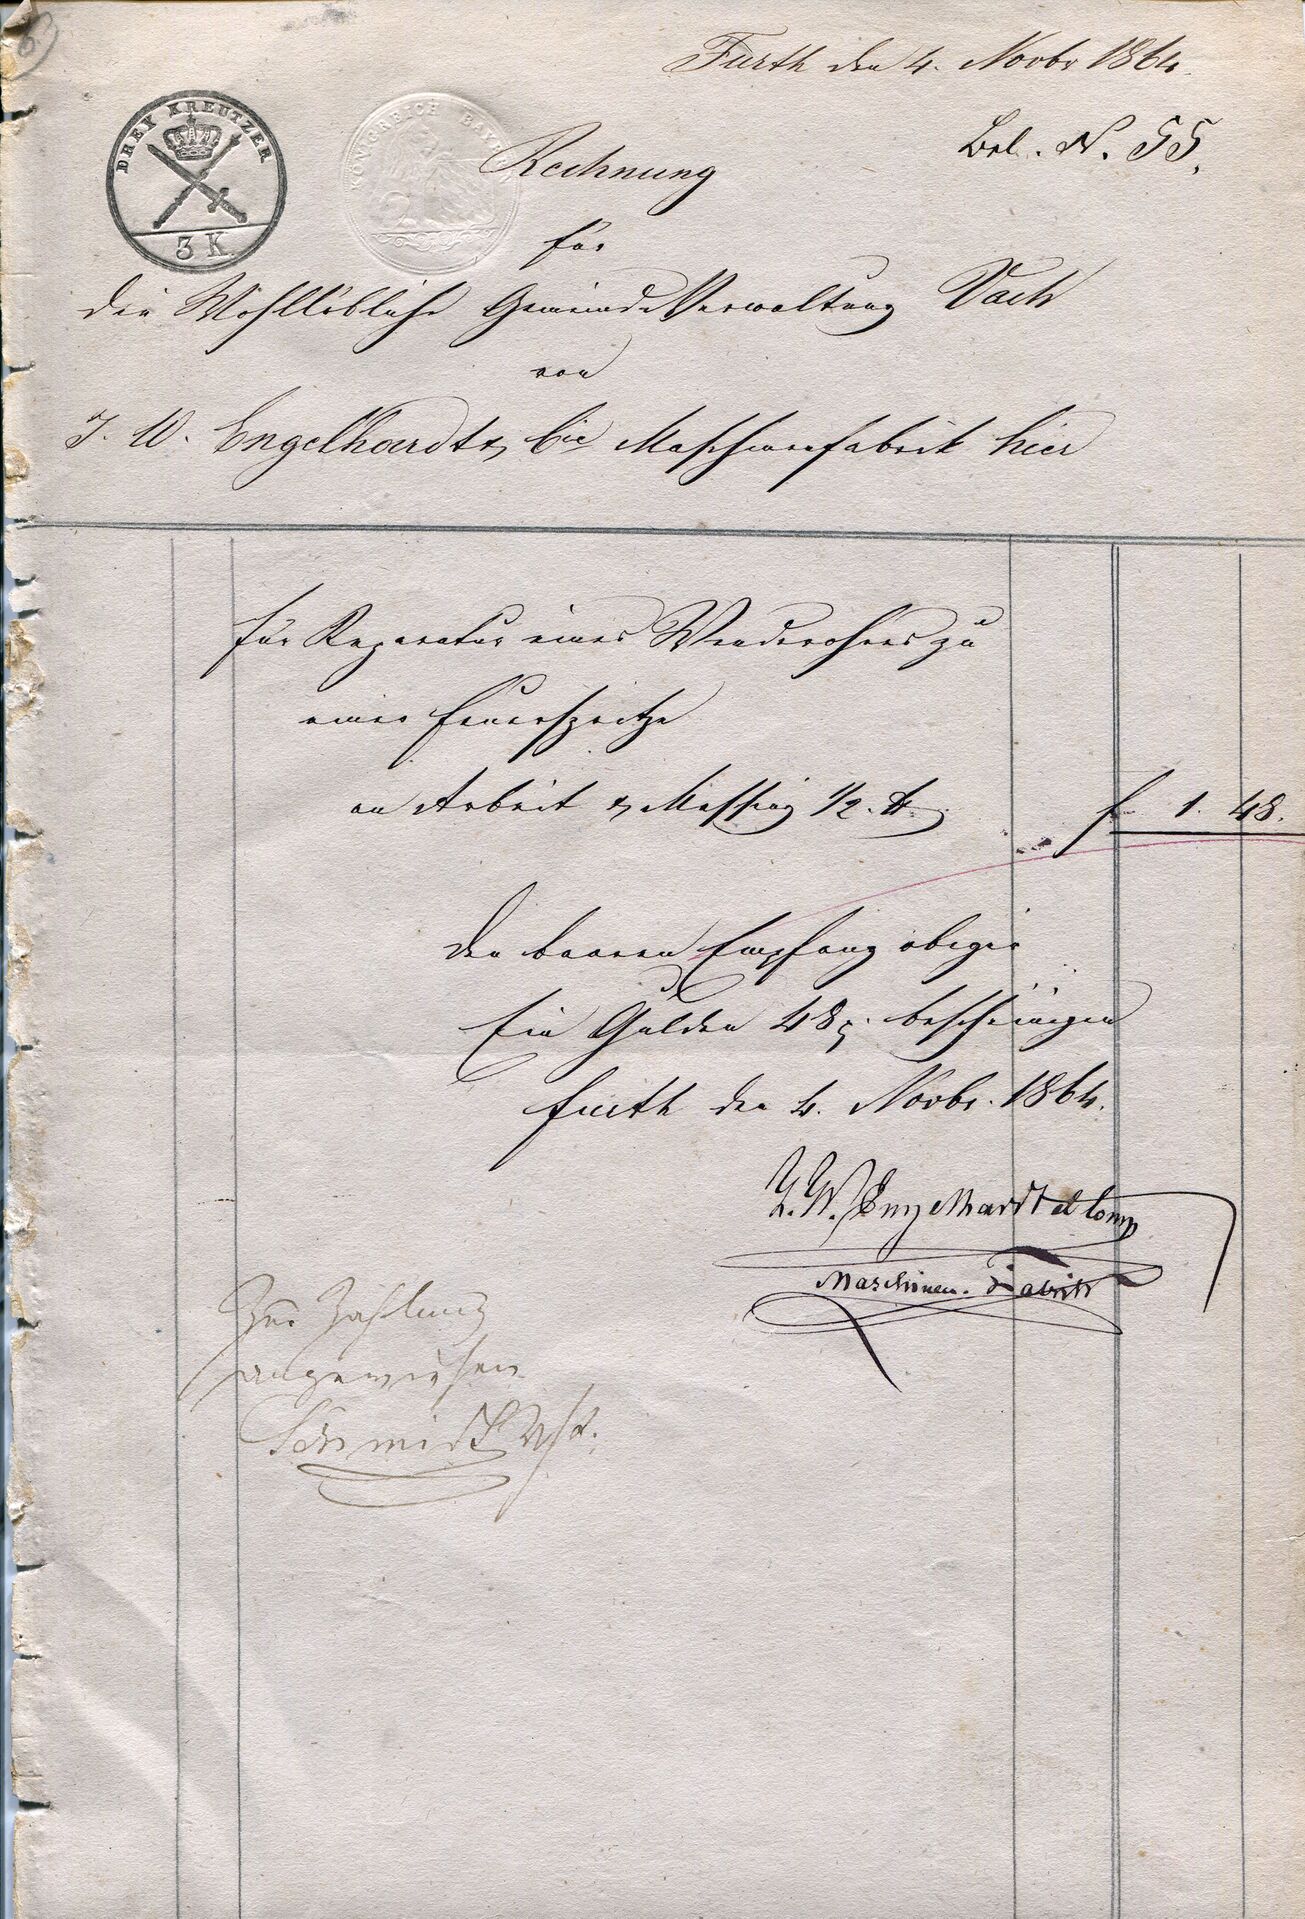 Fürth den 4. Novbr 1864.
DREY KREUTZER
3 K.
KÖNIGREICH BAYERN
Bel. N. 55.
Rechnung
für
die Wohllöbliche Gemeinde Verwaltung Vach
von
J. W. Engelhardt & Cie Maschinenfabrik hier
für Reparatur eines Wenderohres zu
einer Feuerspritze
an Arbeit & Messing 1/2 ℔
f 1. 48.
Den baaren Empfang obiger
Ein Gulden 48 x. bescheinigen
Fürth den 4. Novbr. 1864.
J. W. Engelhardt et Comp
Maschinen-Fabrik
Zur Zahlung
angewiesen
Schmidt Vst.